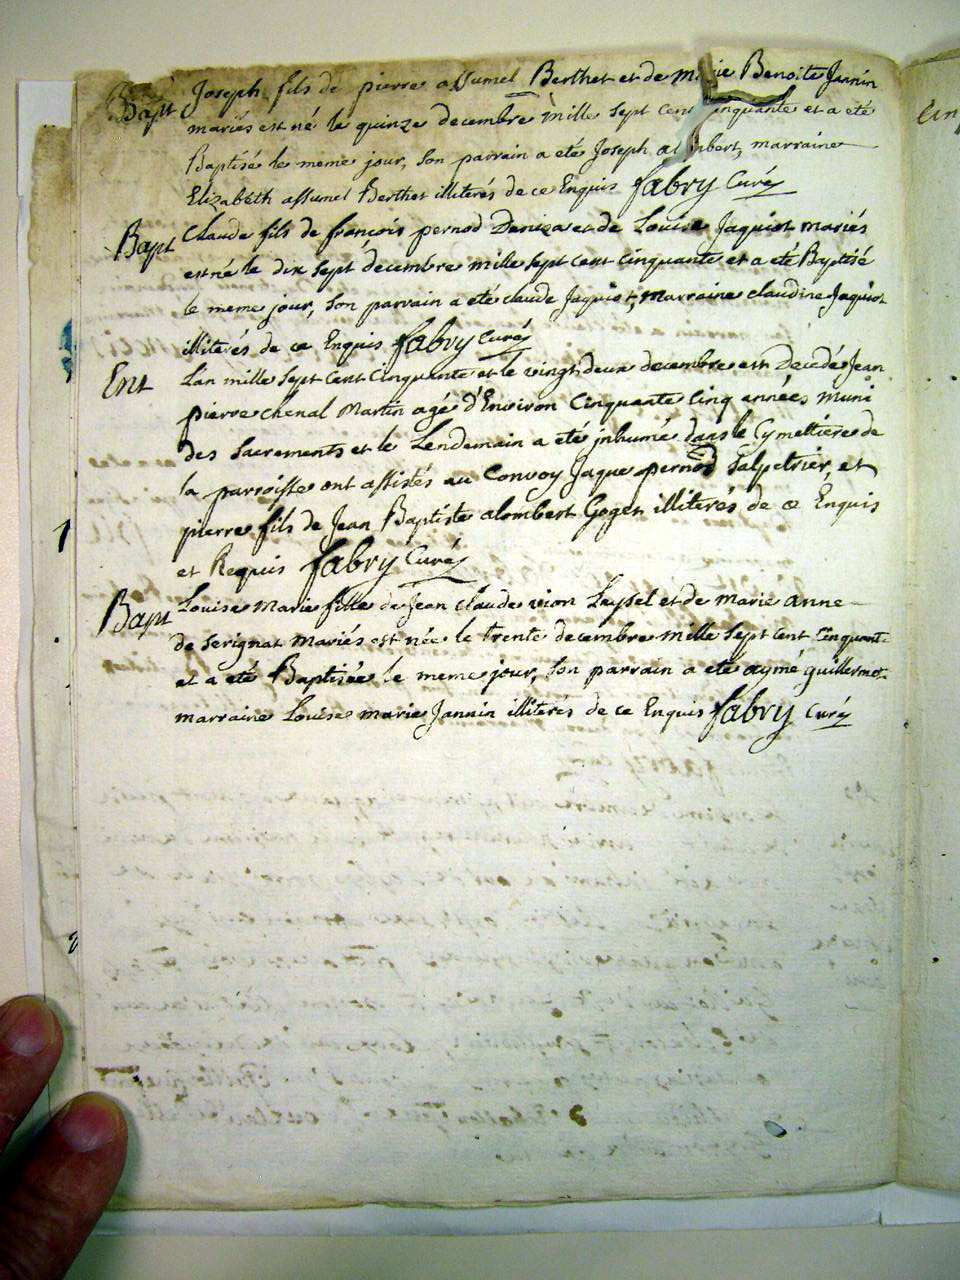 Bapt Joseph fils de pierre assumel Berthet et de Marie Benoite Jannin
mariés est né le quinze decembre mille sept cent cinquante et a eté
Baptisé le meme jour, son parrain a eté Joseph alombert, marraine
Elizabeth assumel Berthet illiterés de ce Enquis fabry Curé
Bapt Claude fils de francois pernod Deniza et de Louise Jaquiot mariés
est né le dix sept décembre mille sept cent cinquante et a eté Baptisé
le meme jour, son parrain a eté claude Jaquiot, marraine claudine Jaquiot
illiterés de ce Enquis fabry Curé
Ent L'an mille sept cent cinquante et le vingt deux decembre est Decedé Jean
pierre chenal Martin agé d'Environ Cinquante Cinq années muni
des Sacrements et le Lendemain a eté inhumé dans le Cymettiere de
la parroisse ont assistés au Convoy Jaque pernod Salpetrier, et
pierre fils de Jean Baptiste alombert Goget illiterés de ce Enquis
et Requis fabry Curé
Bapt Louise Marie fille de Jean Claude vion Laysel et de Marie anne
de serignat Mariés est née le trente decembre mille sept cent cinquante
et a eté Baptisée le meme jour, son parrain a eté aymé guillermet
marraine Louise marie Jannin illiterés de ce Enquis fabry Curé